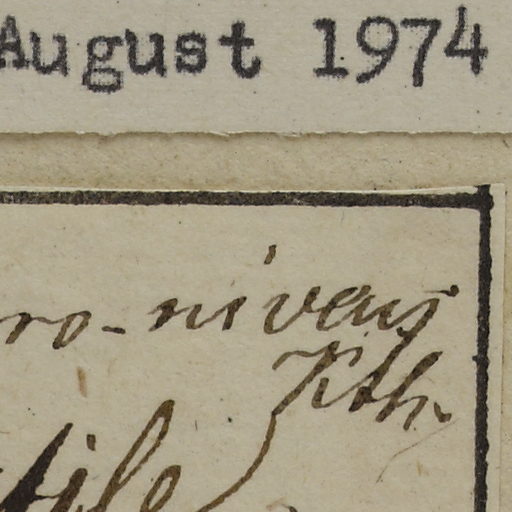 August 1974
ro-niveus
Kth.